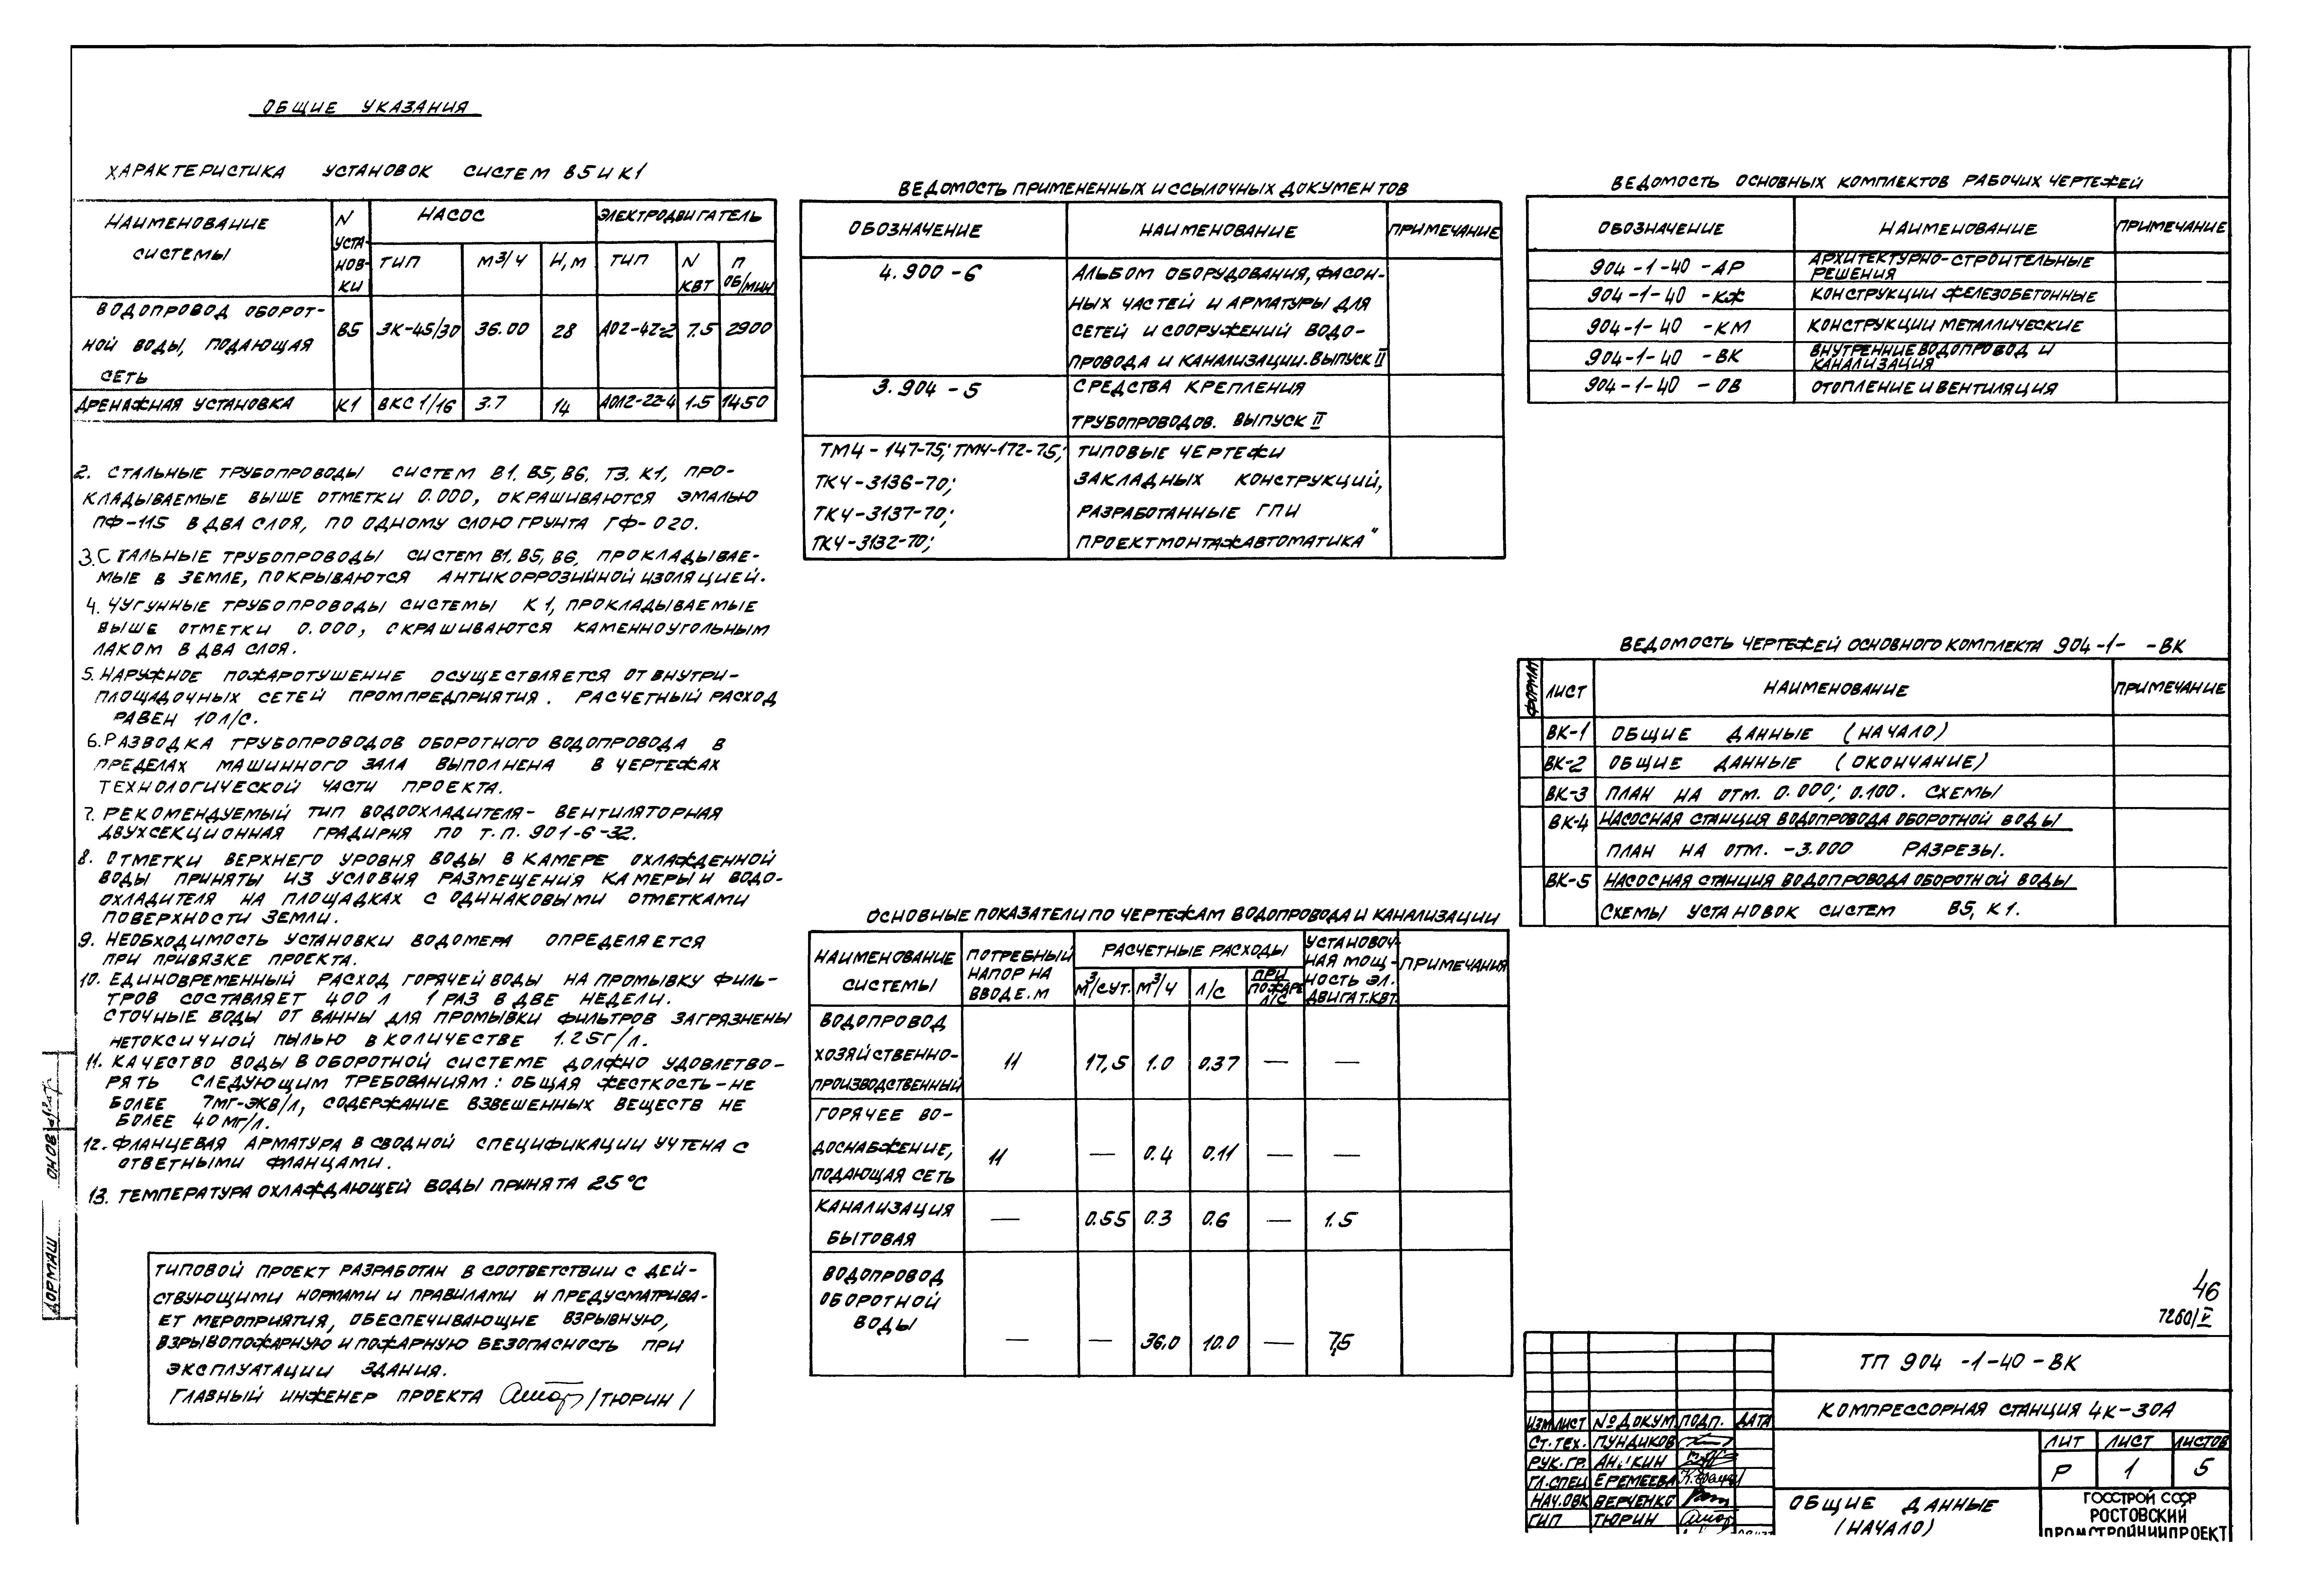 ОБЩИЕ УКАЗАНИЯ
ХАРАКТЕРИСТИКА УСТАНОВОК СИСТЕМ В5 И К1
НАИМЕНОВАНИЕ СИСТЕМЫ
N УСТА-
НОВ-
КИ
НАСОС
ЭЛЕКТРОДВИГАТЕЛЬ
ТИП М3/Ч Н,М ТИП N КВТ П ОБ/МИН
ВОДОПРОВОД ОБОРОТ-
НОЙ ВОДЫ, ПОДАЮЩАЯ
СЕТЬ
В5 3К-45/30 36.00 28 АО2-42-2 7.5 2900
ДРЕНАЖНАЯ УСТАНОВКА К1 ВКС 1/16 3.7 14 АОЛ2-22-4 1.5 1450
2. СТАЛЬНЫЕ ТРУБОПРОВОДЫ СИСТЕМ В1, В5, В6, Т3, К1, ПРО-
КЛАДЫВАЕМЫЕ ВЫШЕ ОТМЕТКИ 0.000, ОКРАШИВАЮТСЯ ЭМАЛЬЮ
ПФ-115 В ДВА СЛОЯ, ПО ОДНОМУ СЛОЮ ГРУНТА ГФ-020.
3. СТАЛЬНЫЕ ТРУБОПРОВОДЫ СИСТЕМ В1, В5, В6, ПРОКЛАДЫВАЕ-
МЫЕ В ЗЕМЛЕ, ПОКРЫВАЮТСЯ АНТИКОРРОЗИЙНОЙ ИЗОЛЯЦИЕЙ.
4. ЧУГУННЫЕ ТРУБОПРОВОДЫ СИСТЕМЫ К1, ПРОКЛАДЫВАЕМЫЕ
ВЫШЕ ОТМЕТКИ 0.000, ОКРАШИВАЮТСЯ КАМЕННОУГОЛЬНЫМ
ЛАКОМ В ДВА СЛОЯ.
5. НАРУЖНОЕ ПОЖАРОТУШЕНИЕ ОСУЩЕСТВЛЯЕТСЯ ОТ ВНУТРИ-
ПЛОЩАДОЧНЫХ СЕТЕЙ ПРОМПРЕДПРИЯТИЯ. РАСЧЕТНЫЙ РАСХОД
РАВЕН 10 Л/С.
6. РАЗВОДКА ТРУБОПРОВОДОВ ОБОРОТНОГО ВОДОПРОВОДА В
ПРЕДЕЛАХ МАШИННОГО ЗАЛА ВЫПОЛНЕНА В ЧЕРТЕЖАХ
ТЕХНОЛОГИЧЕСКОЙ ЧАСТИ ПРОЕКТА.
7. РЕКОМЕНДУЕМЫЙ ТИП ВОДООХЛАДИТЕЛЯ- ВЕНТИЛЯТОРНАЯ
ДВУХСЕКЦИОННАЯ ГРАДИРНЯ ПО Т.П. 901-6-32.
8. ОТМЕТКИ ВЕРХНЕГО УРОВНЯ ВОДЫ В КАМЕРЕ ОХЛАЖДЕННОЙ
ВОДЫ ПРИНЯТЫ ИЗ УСЛОВИЯ РАЗМЕЩЕНИЯ КАМЕРЫ И ВОДО-
ОХЛАДИТЕЛЯ НА ПЛОЩАДКАХ С ОДИНАКОВЫМИ ОТМЕТКАМИ
ПОВЕРХНОСТИ ЗЕМЛИ.
9. НЕОБХОДИМОСТЬ УСТАНОВКИ ВОДОМЕРА ОПРЕДЕЛЯЕТСЯ
ПРИ ПРИВЯЗКЕ ПРОЕКТА.
10. ЕДИНОВРЕМЕННЫЙ РАСХОД ГОРЯЧЕЙ ВОДЫ НА ПРОМЫВКУ ФИЛЬ-
ТРОВ СОСТАВЛЯЕТ 400 Л 1 РАЗ В ДВЕ НЕДЕЛИ.
СТОЧНЫЕ ВОДЫ ОТ ВАННЫ ДЛЯ ПРОМЫВКИ ФИЛЬТРОВ ЗАГРЯЗНЕНЫ
НЕТОКСИЧНОЙ ПЫЛЬЮ В КОЛИЧЕСТВЕ 1.25Г/Л.
11. КАЧЕСТВО ВОДЫ В ОБОРОТНОЙ СИСТЕМЕ ДОЛЖНО УДОВЛЕТВО-
РЯТЬ СЛЕДУЮЩИМ ТРЕБОВАНИЯМ: ОБЩАЯ ЖЕСТКОСТЬ-НЕ
БОЛЕЕ 7МГ-ЭКВ/Л, СОДЕРЖАНИЕ ВЗВЕШЕННЫХ ВЕЩЕСТВ НЕ
БОЛЕЕ 40МГ/Л.
12. ФЛАНЦЕВАЯ АРМАТУРА В СВОДНОЙ СПЕЦИФИКАЦИИ УЧТЕНА С
ОТВЕТНЫМИ ФЛАНЦАМИ.
13. ТЕМПЕРАТУРА ОХЛАЖДАЮЩЕЙ ВОДЫ ПРИНЯТА 25°С
ТИПОВОЙ ПРОЕКТ РАЗРАБОТАН В СООТВЕТСТВИИ С ДЕЙ-
СТВУЮЩИМИ НОРМАМИ И ПРАВИЛАМИ И ПРЕДУСМАТРИВА-
ЕТ МЕРОПРИЯТИЯ, ОБЕСПЕЧИВАЮЩИЕ ВЗРЫВНУЮ,
ВЗРЫВОПОЖАРНУЮ И ПОЖАРНУЮ БЕЗОПАСНОСТЬ ПРИ
ЭКСПЛУАТАЦИИ ЗДАНИЯ.
ГЛАВНЫЙ ИНЖЕНЕР ПРОЕКТА /ТЮРИН/
ДОРМАШ
ВЕДОМОСТЬ ПРИМЕНЕННЫХ И ССЫЛОЧНЫХ ДОКУМЕНТОВ
ОБОЗНАЧЕНИЕ НАИМЕНОВАНИЕ ПРИМЕЧАНИЕ
4.900-6 АЛЬБОМ ОБОРУДОВАНИЯ, ФАСОН-
НЫХ ЧАСТЕЙ И АРМАТУРЫ ДЛЯ
СЕТЕЙ И СООРУЖЕНИЙ ВОДО-
ПРОВОДА И КАНАЛИЗАЦИИ. ВЫПУСК II
3.904-5 СРЕДСТВА КРЕПЛЕНИЯ
ТРУБОПРОВОДОВ. ВЫПУСК II
ТМ4-147-75; ТМ4-172-75; ТИПОВЫЕ ЧЕРТЕЖИ
ТК4-3136-70; ЗАКЛАДНЫХ КОНСТРУКЦИЙ,
ТК4-3137-70; РАЗРАБОТАННЫЕ ГПИ
ТК4-3132-70; ПРОЕКТМОНТАЖАВТОМАТИКА"
ОСНОВНЫЕ ПОКАЗАТЕЛИ ПО ЧЕРТЕЖАМ ВОДОПРОВОДА И КАНАЛИЗАЦИИ
НАИМЕНОВАНИЕ
СИСТЕМЫ
ПОТРЕБНЫЙ
НАПОР НА
ВВОДЕ. М
РАСЧЕТНЫЕ РАСХОДЫ
М3/СУТ. М3/Ч Л/С ПРИ ПОЖАРЕ Л/С
УСТАНОВОЧ-
НАЯ МОЩ-
НОСТЬ ЭЛ.
ДВИГАТ. КВТ.
ПРИМЕЧАНИЯ
ВОДОПРОВОД
ХОЗЯЙСТВЕННО-
ПРОИЗВОДСТВЕННЫЙ
11 17,5 1.0 0.37 — —
ГОРЯЧЕЕ ВО-
ДОСНАБЖЕНИЕ,
ПОДАЮЩАЯ СЕТЬ
11 — 0.4 0.11 — —
КАНАЛИЗАЦИЯ
БЫТОВАЯ
— 0.55 0.3 0.6 — 1.5
ВОДОПРОВОД
ОБОРОТНОЙ
ВОДЫ
— — 36.0 10.0 — 7,5
ВЕДОМОСТЬ ОСНОВНЫХ КОМПЛЕКТОВ РАБОЧИХ ЧЕРТЕЖЕЙ
ОБОЗНАЧЕНИЕ НАИМЕНОВАНИЕ ПРИМЕЧАНИЕ
904-1-40-АР АРХИТЕКТУРНО-СТРОИТЕЛЬНЫЕ
РЕШЕНИЯ
904-1-40-КЖ КОНСТРУКЦИИ ЖЕЛЕЗОБЕТОННЫЕ
904-1-40-КМ КОНСТРУКЦИИ МЕТАЛЛИЧЕСКИЕ
904-1-40-ВК ВНУТРЕННИЕ ВОДОПРОВОД И
КАНАЛИЗАЦИЯ
904-1-40-ОВ ОТОПЛЕНИЕ И ВЕНТИЛЯЦИЯ
ВЕДОМОСТЬ ЧЕРТЕЖЕЙ ОСНОВНОГО КОМПЛЕКТА 904-1- -ВК
ФОРМАТ ЛИСТ НАИМЕНОВАНИЕ ПРИМЕЧАНИЕ
ВК-1 ОБЩИЕ ДАННЫЕ (НАЧАЛО)
ВК-2 ОБЩИЕ ДАННЫЕ (ОКОНЧАНИЕ)
ВК-3 ПЛАН НА ОТМ. 0.000; 0.100. СХЕМЫ
ВК-4 НАСОСНАЯ СТАНЦИЯ ВОДОПРОВОДА ОБОРОТНОЙ ВОДЫ
ПЛАН НА ОТМ. -3.000 РАЗРЕЗЫ.
ВК-5 НАСОСНАЯ СТАНЦИЯ ВОДОПРОВОДА ОБОРОТНОЙ ВОДЫ
СХЕМЫ УСТАНОВОК СИСТЕМ В5, К1.
46
7260/V
ТП 904-1-40-ВК
КОМПРЕССОРНАЯ СТАНЦИЯ 4К-30А
ИЗМ ЛИСТ №ДОКУМ. ПОДП. ДАТА
СТ.ТЕХ. ПУНДИКОВ
РУК.ГР.
ГЛ.СПЕЦ ЕРЕМЕЕВА
НАЧ.ОВК ВЕРЧЕНКО
ГИП ТЮРИН
ЛИТ ЛИСТ ЛИСТОВ
Р 1 5
ОБЩИЕ ДАННЫЕ
(НАЧАЛО)
ГОССТРОЙ СССР
РОСТОВСКИЙ
ПРОМСТРОЙНИИПРОЕКТ